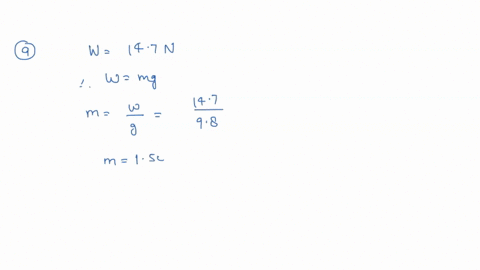 9 W = 14.7 N
∴ W = mg
m = w/g = 14.7/9.8
m = 1.5